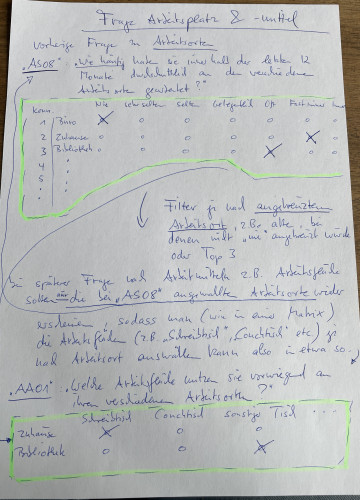 Frage Arbeitsplatz & -mittel
vorherige Frage zu Arbeitsorten
"AS08": "Wie häufig haben sie innerhalb der letzten 12
Monate durchschnittlich an den verschiedenen
Arbeitsorten gearbeitet?"
Nie sehr selten selten Gelegentlich Oft Fast immer
1 Büro
2 Zuhause
3 Bibliothek
4
5
Filter je nach angekreuztem
Arbeitsort, z.B. alle, bei
denen nicht "nie" angekreuzt wurde
oder Top 3
bei späterer Frage nach Arbeitsmitteln z.B. Arbeitsfläche
sollen nur die bei "AS08" ausgewählten Arbeitsorte wieder
erscheinen, sodass man (wie in einer Matrix)
die Arbeitsflächen (z.B. "Schreibtisch", "Couchtisch" etc) je
nach Arbeitsort auswählen kann also in etwa so...
"AA01": "Welche Arbeitsfläche nutzen sie vorwiegend an
ihren verschiedenen Arbeitsorten?"
Schreibtisch Couchtisch sonstiger Tisch ...
Zuhause
Bibliothek